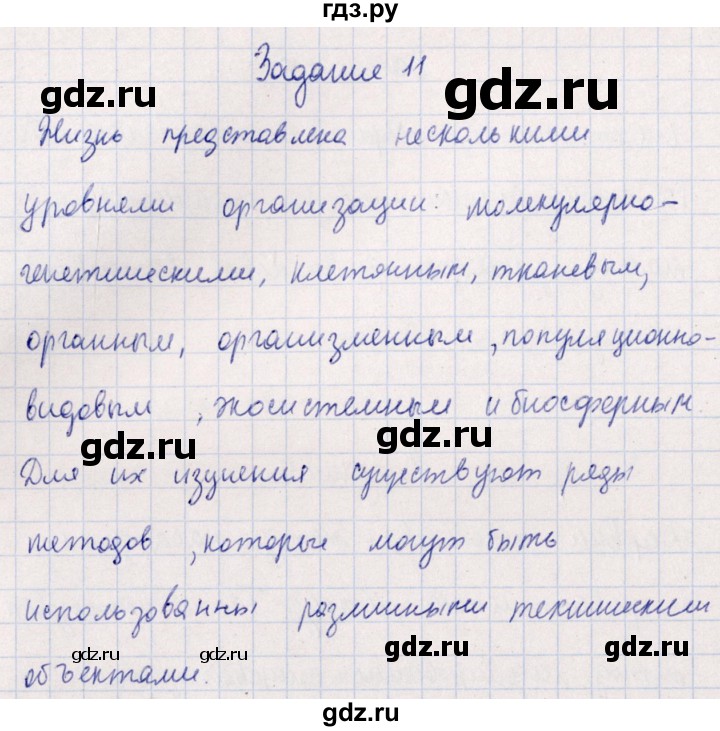 гдз.ру
Задание 11
gdz.ru gdz.ru
Жизнь представлена несколькими
уровнями организации: молекулярно-
генетическими, клеточным, тканевым,
органным, организменным, популяционно-
видовым, экосистемным и биосферным.
gdz.ru gdz.ru
Для их изучения существуют ряды
методов, которые могут быть
использованны различными техническими
gdz.ru gdz.ru gdz.ru gdz.ru
объектами.
gdz.ru